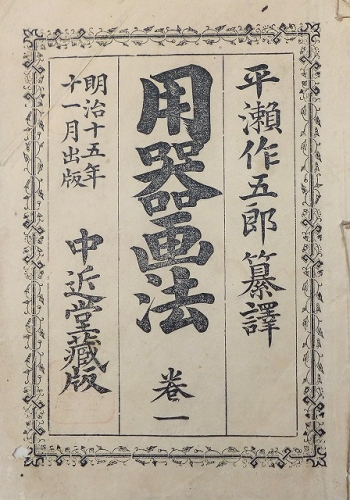 平瀬作五郎纂譯
用器画法
卷一
明治十五年
十一月出版
中近堂藏版